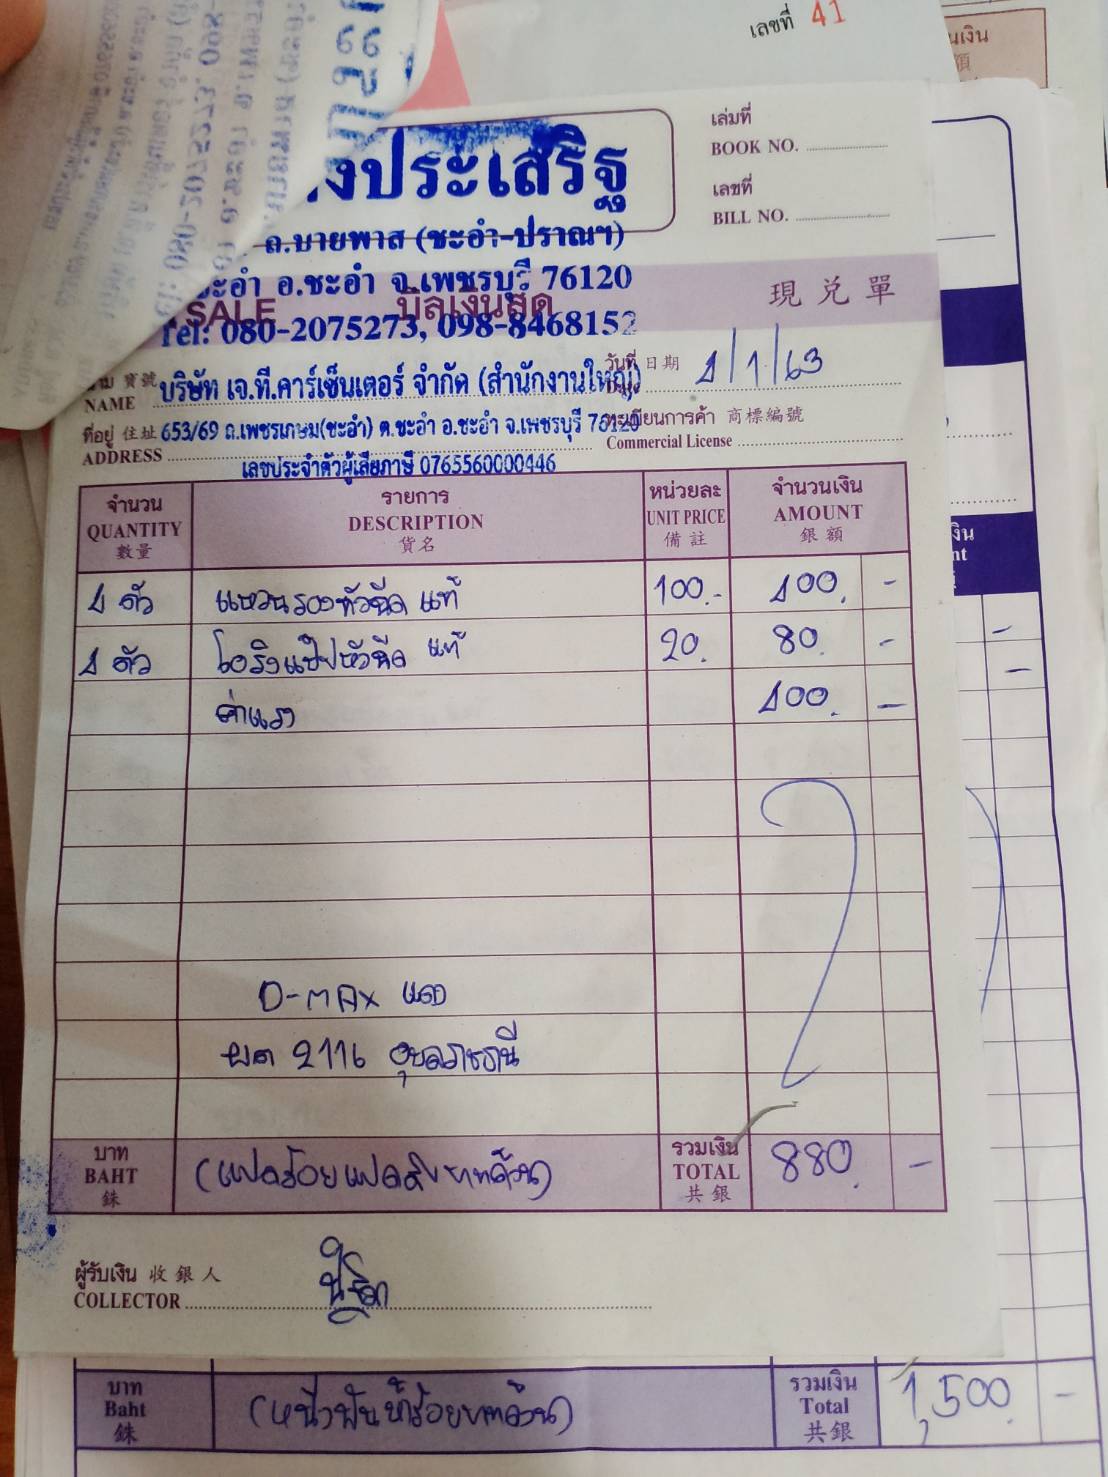 เลขที่ 41
งประเสริฐ
เล่มที่
BOOK NO.
เลขที่
BILL NO.
ถ.บายพาส (ชะอำ-ปราณฯ)
ชะอำ อ.ชะอำ จ.เพชรบุรี 76120
SALE บิลเงินสด 現兑單
Tel: 080-2075273, 098-8468152
วันที่ 日期 1/1/63
寳號 บริษัท เจ.ที.คาร์เซ็นเตอร์ จำกัด (สำนักงานใหญ่)
NAME
ที่อยู่ 住址 653/69 ถ.เพชรเกษม(ชะอำ) ต.ชะอำ อ.ชะอำ จ.เพชรบุรี 76120
ทะเบียนการค้า 商標編號
ADDRESS
Commercial License
เลขประจำตัวผู้เสียภาษี 0765560000446
จำนวน รายการ หน่วยละ จำนวนเงิน
QUANTITY DESCRIPTION UNIT PRICE AMOUNT
數量 貨名 備註 銀額
4 ตัว แหวนรองหัวฉีด แท้ 100.- 400. -
4 ตัว โอริงแป๊ปหัวฉีด แท้ 20. 80. -
ค่าแรง 400. -
D-MAX แดง
ผต 2116 อุบลราชธานี
บาท
BAHT
銖
(แปดร้อยแปดสิบบาทถ้วน)
รวมเงิน
TOTAL
共銀
880. -
ผู้รับเงิน 收銀人
COLLECTOR
บาท
Baht
銖
(หนึ่งพันห้าร้อยบาทถ้วน)
รวมเงิน
Total
共銀
1,500. -